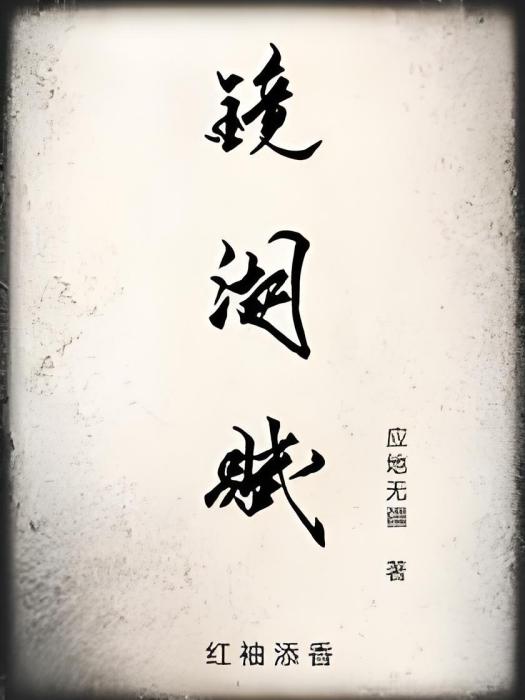 镜湖赋
应无 著
红袖添香